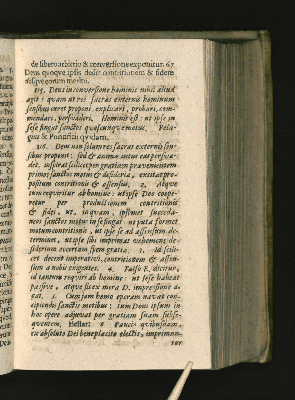 de libero arbitrio & conversione exponitur. 67
Deus quoque ipsis dedit contritionem & fidem
absque eorum merito.
113. Deus in conversione hominis nihil aliud
agit : quam ut res sacras externis hominum
sensibus curet proponi, explicari, probari, com-
mendari, persvaderi. Hominis est : ut ipse in
se se fingat sanctos quoscunque motus. Pela-
gius & Pontificii quidam.
114. Deus non solum res sacras externis sen-
sibus proponit : sed & animo intus eas persva-
det, insitque scilicet per gratiam prævenientem
primos sanctos motus & desideria, excitat pro-
positum contritionis & assensus. 2. Atque
tum requiritur ab homine : ut ipse Deo coope-
retur per productionem contritionis
& fidei, ut, inquam, ipsemet succeda-
neos sanctos motus in se fingat : ut puta formet
motum contritionis, ut ipse se ad assensum de-
terminet, ut ipse sibi imprimat vehementem de-
siderium
3. Id scili-
cet decent imperativi, contritionem & assen-
sum a nobis exigentes. 4. Falso F. dicitur,
id tantum requiri ab homine : ut sese habeat
passive, atque sicut mera D. impressione a-
gat. 5. Cum jam homo operam navat con-
cipiendis sanctis motibus : tum Deus ipsum in
hoc opere adjuvat per gratiam suam subse-
quentem. Bellarr. & Pauci quibusdam,
ex absoluto Dei beneplacito electis, imprimun-
tur